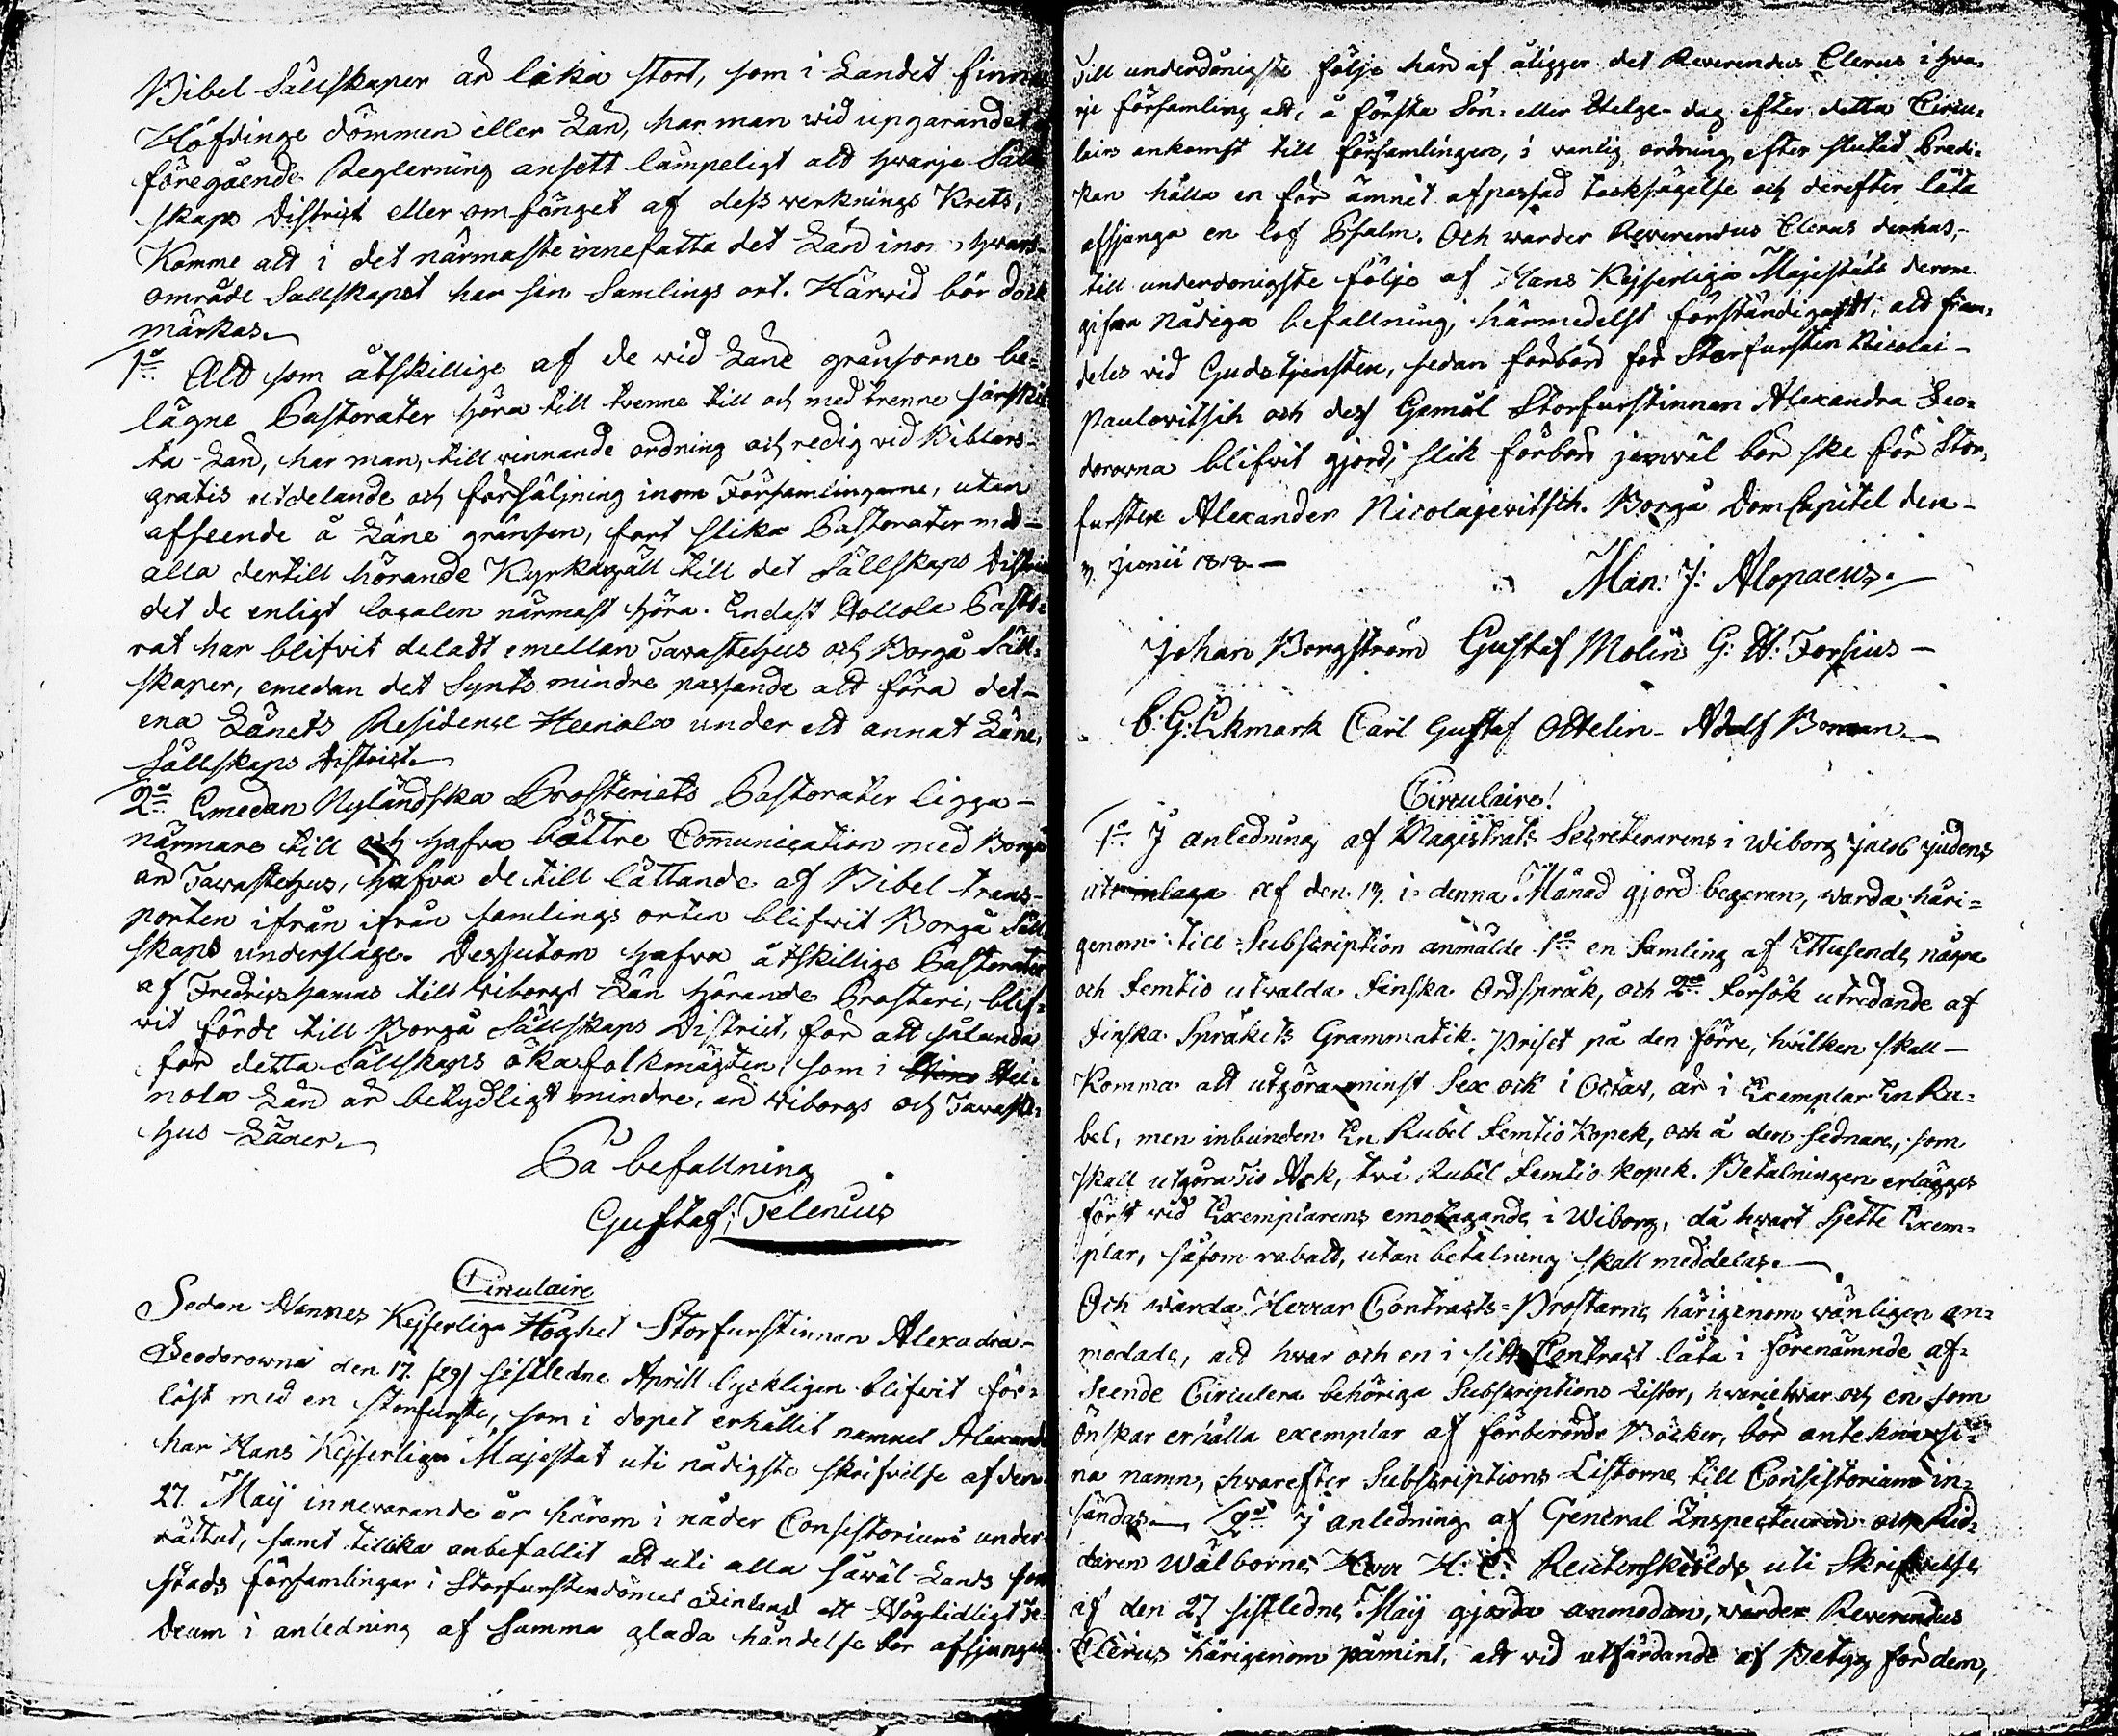 Bibel Sällskaper är lika stort, som i Landet finnes
Höfdinge dömmen eller Län, har man wid upgörandet af
föregående Reglerning ansett lämpeligt att hwarje Säll-
skaps District eller omfånget af dess werknings Krets,
Komme att i det närmaste innefatta det Län inom hwars
område Sällskapet har sin Samlings ort. Härwid bör dock
märkas.
1o Att som åtskillige af de wid Läne gränsorne be-
lägne Pastorater höra till tvenne till och med trenne särskil
ta Län, har man, till vinnande ordning och redig wid Biblars
gratis utdelande och försäljning inom Församlingarne, utan
afseende å Läne gränsen, fört slika Pastorater med
alla dertill hörande Kyrkogäll till det Sällskaps District
det de enligt localen närmast höra. Endast Hollola Pasto-
rat har blifvit deladt emellan Tawastehus och Borgå Säll-
skaper, emedan det Synts mindre passande att föra det
ena Länets Residence Heinola under ett annat Läne
Sällskaps District.
2o Emedan Nyländska Prosteriets Pastorater ligga
närmare till och hafva bättre Communication med Borgå
än Tawastehus, hafva de till lättande af Bibel trans-
porten ifrån ifrån samlings orten blifwit Borgå Säll
skaps underslagne. Dessutom hafva åtskillige Pastorater
af Fredricshamns till Wiborgs Län hörande Prosteri, blif-
vit förde till Borgå Sällskaps District, för att sålunda
för detta Sällskaps öka folkmägten, som i Hei-
nola Län är betydligt mindre, än Wiborgs och Tawaste-
hus Läner.
På befallning
Gustaf Telenius
Circulaire
Sedan Hennes Kejserliga Höghet Storfurstinnan Alexadra
Feodorowna den 17. (29) sistledne Aprill lyckligen blifvit för-
löst med en Storfurste, som i dopet erhållit namnet Alexander
har Hans Kejserliga Majestät uti nådigste skrifvelse af den
27. Maij innevarande år härom i nåder Consistorium under
rättat, samt tillika anbefallit att uti alla såwäl Lands som
stads församlingar i Storfurstendömet Finland ett Högtidligt Te-
Deum i anledning af Samma glada händelse bör afsjungas.
Till underdånigste följe här af åligger det Reverendus Clerus i hva-
rje församling att, å första Sön- eller Helge- dag efter detta Circu-
lairs ankomst till församlingen, i vanlig ordning efter slutad Predi-
kan hålla en för ämnet afpassad tacksägelse och derefter låta
afsjunga en lof Psalm. Och warder Reverendus Clerus derhus,
till underdånigste följe af Hans Kejserliga Majestäts derom
gifwna Nådiga befallning, härmedelst förständigadt, att fram-
deles vid Gudstjensten, sedan förbön för Storfursten Nicolai
Paulovitsch och dess Gemål Storfurstinnan Alexandra Feo-
dorovna blifvit gjord, slik förbön jemväl bör ske för Stor-
fursten Alexander Nicolajevitsch. Borgå Dom Capitel den
3. Junii 1818.
Mån: J: Alopaeus.
Johan Borgström Gustaf Molin G: H: Forsius
C: G: Ekmark Carl Gustaf Ottelin Adolf Boman
Circulaire!
1o I anledning af Magistrats Secreterarens i Wiborg Jacob Judens
uti inlaga af den 13. i denna Månad gjord begeran, warda häri-
genom till Subscription anmälde 1o en Samling af Ettusende några
och femtio utvalda Finska Ordspråk, och 2o Försök utredande af
Finska Språkets Grammatik. Priset på den förre, hvilken skall
Komma att utgöra minst Sex ark i Octav, är i Exemplar En Ru-
bel, men inbunden En Rubel femtio Kopek, och å den sednare, som
skall utgöra Tio Ark, två Rubel Femtio Kopek. Betalningen erlägges
först wid Exemplarens emottagande i Wiborg, då hwart Sjette Exem-
plar, såsom rabatt, utan betalning skall meddelas.
Och warda Herrar Contracts-Prostarne härigenom wänligen an-
modade, att hwar och en i sitt Contract låta i förenämnde af-
seende Circulera behöriga Subscriptions Listor, hvari hvar och en som
Önskar erhålla exemplar af förberörde Böcker, bör anteckna si-
na namn, hvarefter Subscriptions Listorne till Consistorium in-
sändas. 2o I anledning af General Inspecteuren och Rid-
daren Wälborne Herr H. C. Reutersköldz uti Skrifvelse
af den 27 sistledne Maij gjorda anmodan, warder Reverendus
Clerus härigenom påmint, att wid utfärdande af Betyg för dem,